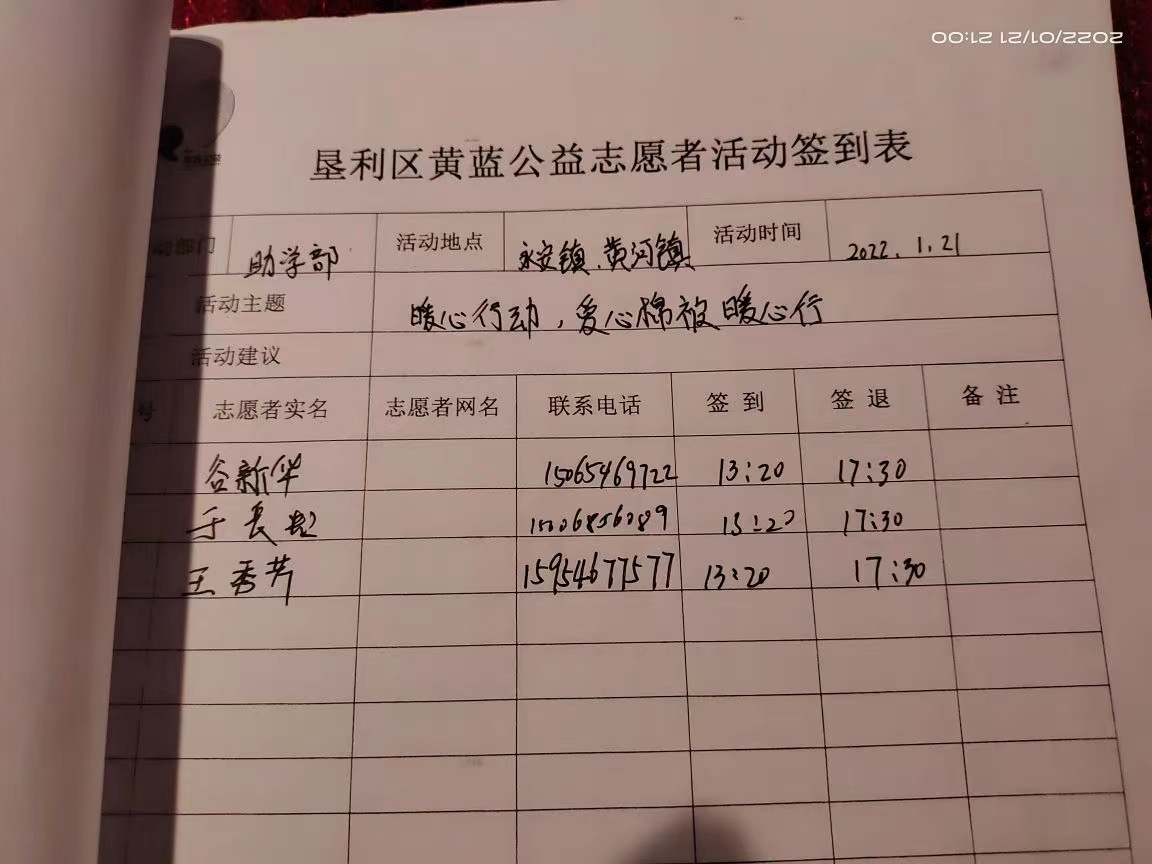 2022/01/21 21:00
垦利区黄蓝公益志愿者活动签到表
动部门 助学部 活动地点 永安镇、黄河镇 活动时间 2022.1.21
活动主题 暖心行动,爱心棉被暖心行
活动建议
号 志愿者实名 志愿者网名 联系电话 签到 签退 备注
谷新华 15065469722 13:20 17:30
于长 17:30
王秀芳 15954677577 13:20 17:30